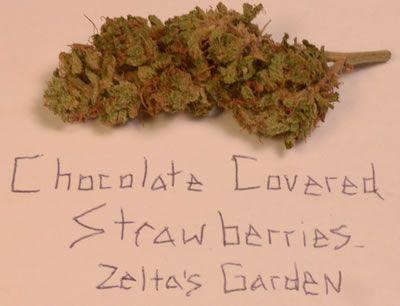 Chocolate Covered
Strawberries
Zelta's Garden